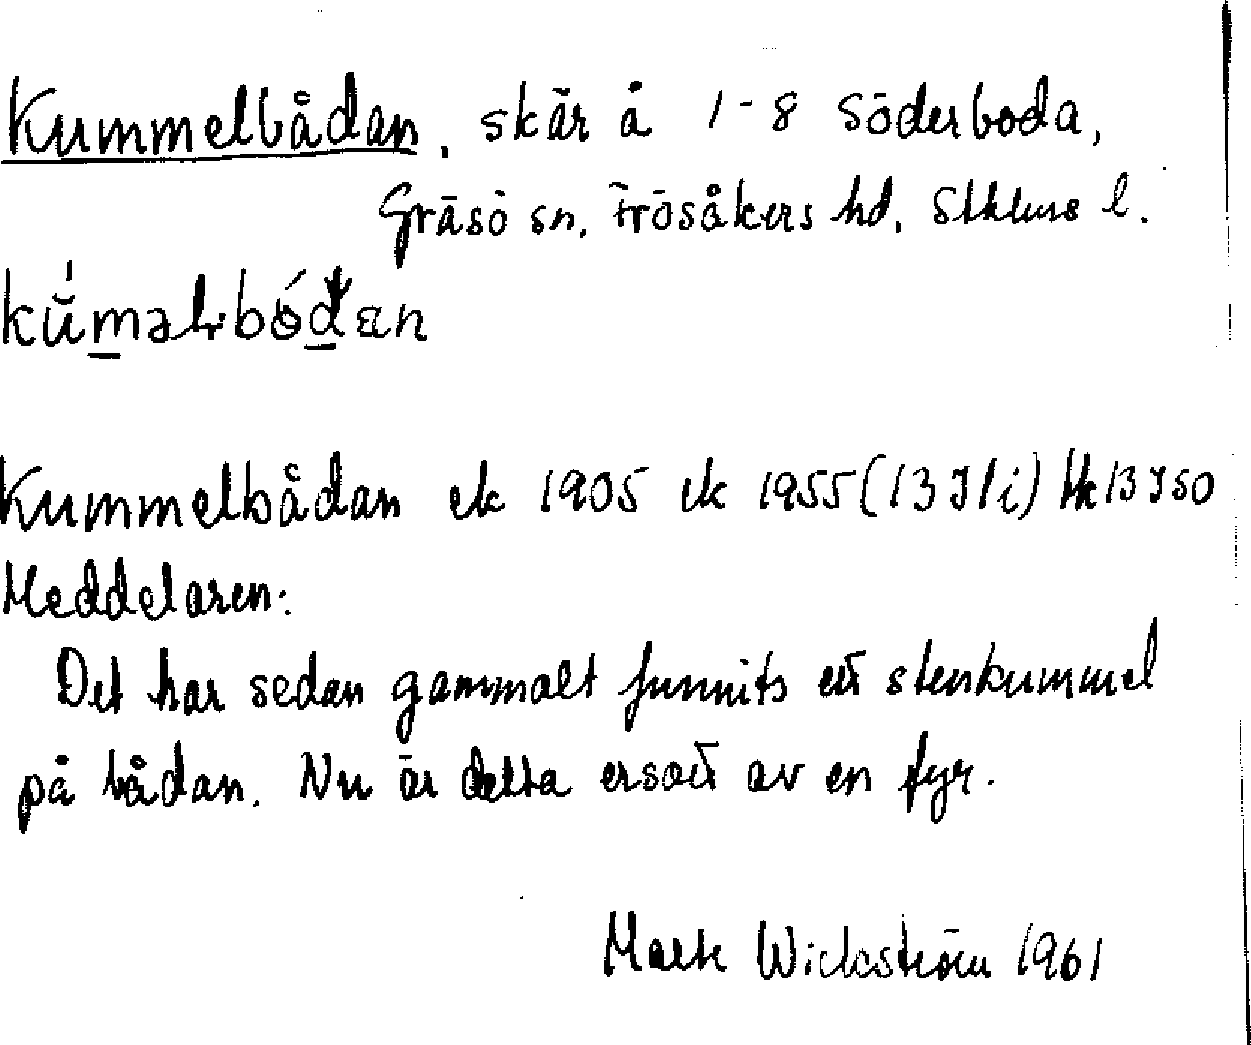 Kummelbådan, skär å 1-8 Söderboda,
Gräsö sn, Frösåkers hd, Sthlms l.
Kummelbådan ek 1905 ek 1955 (13 I 1 i) 13 I SO
Meddelaren:
Det har sedan gammalt funnits ett stenkummel
på bådan. Nu är detta ersatt av en fyr.
Wickström 1961